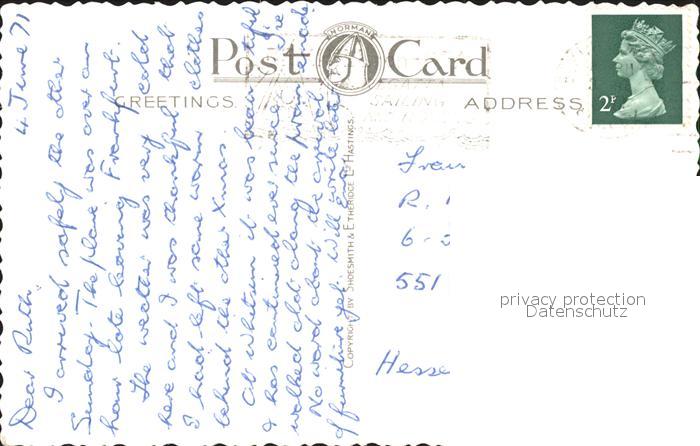 4 June 71
Dear Ruth.
I arrived safely the other
Sunday. The plane was over an
hour late leaving Frankfurt.
The weather was very cold
here and I was thankful that
I had left some warm clothes
behind the other Xmas
At Whitsun it was beautiful
& has continued ever since. I've
walked a lot along the promenade.
No word about the arrival
of furniture yet. Will write later
POST CARD
NORMAN
GREETINGS. ADDRESS
SAILING
COPYRIGHT BY SHOESMITH & ETHERIDGE LTD HASTINGS.
2P
Frau
R.
6-
551
Hesse
privacy protection
Datenschutz